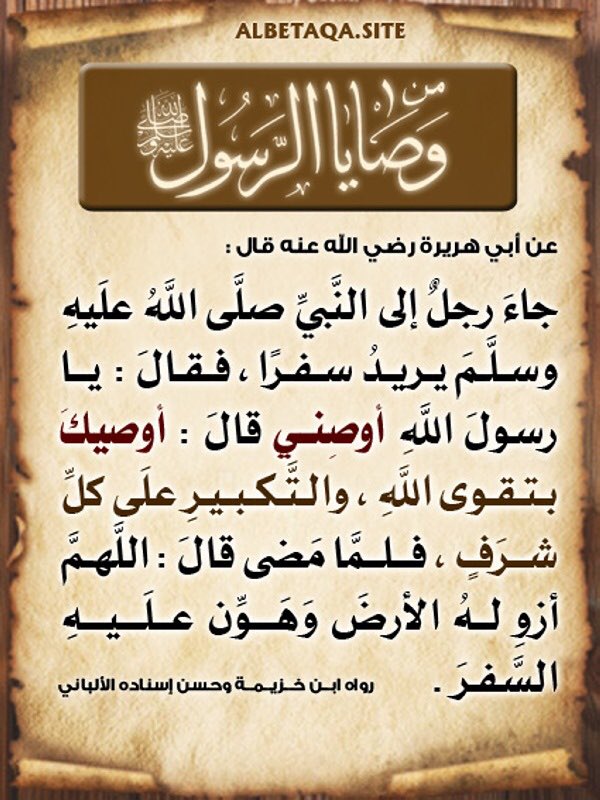 ALBETAQA.SITE
من وصايا الرسول ﷺ
عن أبي هريرة رضي الله عنه قال :
جاءَ رجلٌ إلى النَّبيِّ صلَّى اللَّهُ علَيهِ
وسلَّمَ يريدُ سفرًا ، فقالَ : يا
رسولَ اللَّهِ أوصِني قالَ : أوصيكَ
بتقوى اللَّهِ ، والتَّكبيرِ علَى كلِّ
شرَفٍ ، فلمَّا مَضى قالَ : اللَّهمَّ
أزوِ لهُ الأرضَ وَهَوِّن علَيهِ
السَّفرَ .
رواه ابن خزيمة وحسن إسناده الألباني